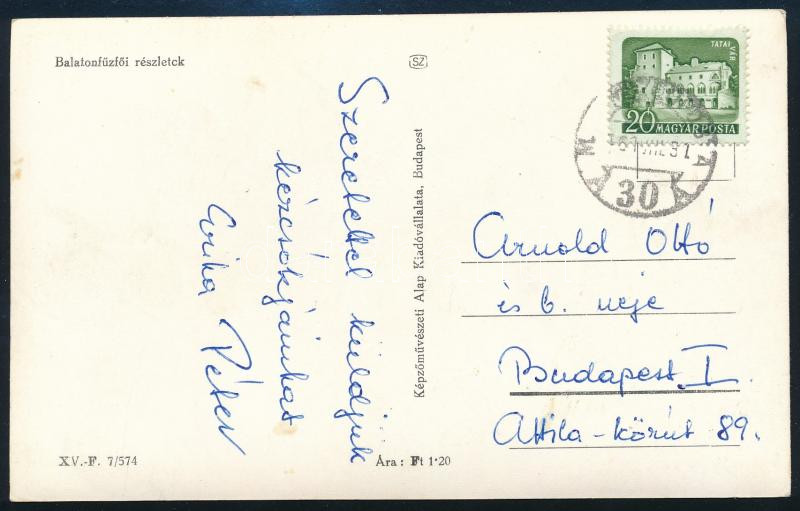 Balatonfűzfői részletek
SZ
TATAI VÁR
20 MAGYAR POSTA
30
Szeretettel küldjük
kézcsókjainkat
Erika Péter
Képzőművészeti Alap Kiadóvállalata, Budapest
Arnold Ottó
és b. neje
Budapest I.
Attila-körút 89.
XV.-F. 7/574
Ára: Ft 1·20